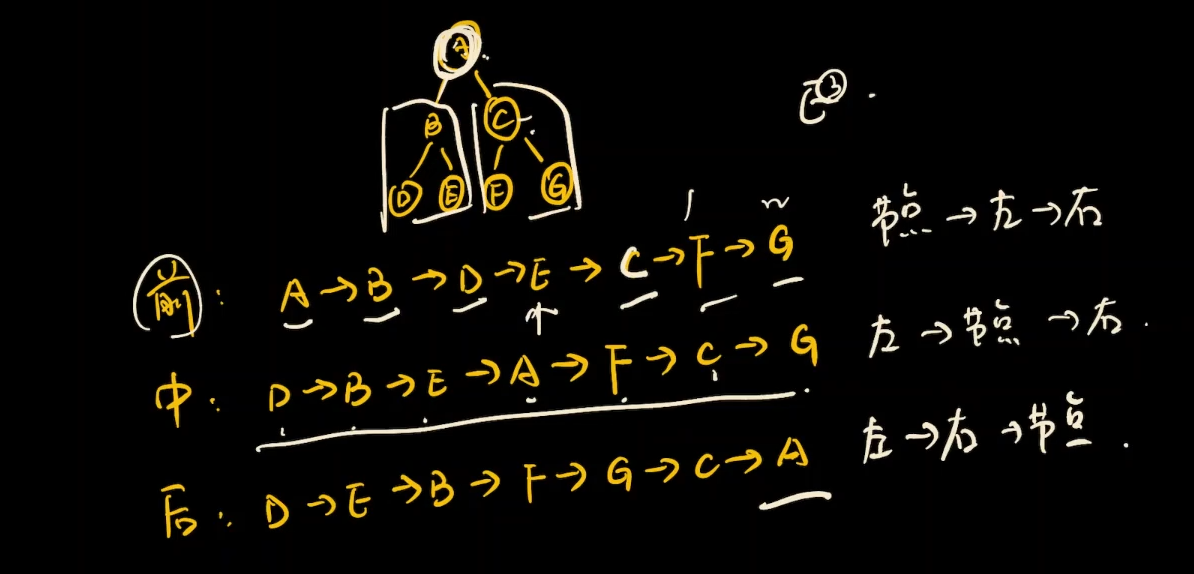 A
B C
D E F G
③
节点→左→右
前: A→B→D→E→C→F→G
左→节点→右.
中: D→B→E→A→F→C→G
左→右→节点.
后: D→E→B→F→G→C→A